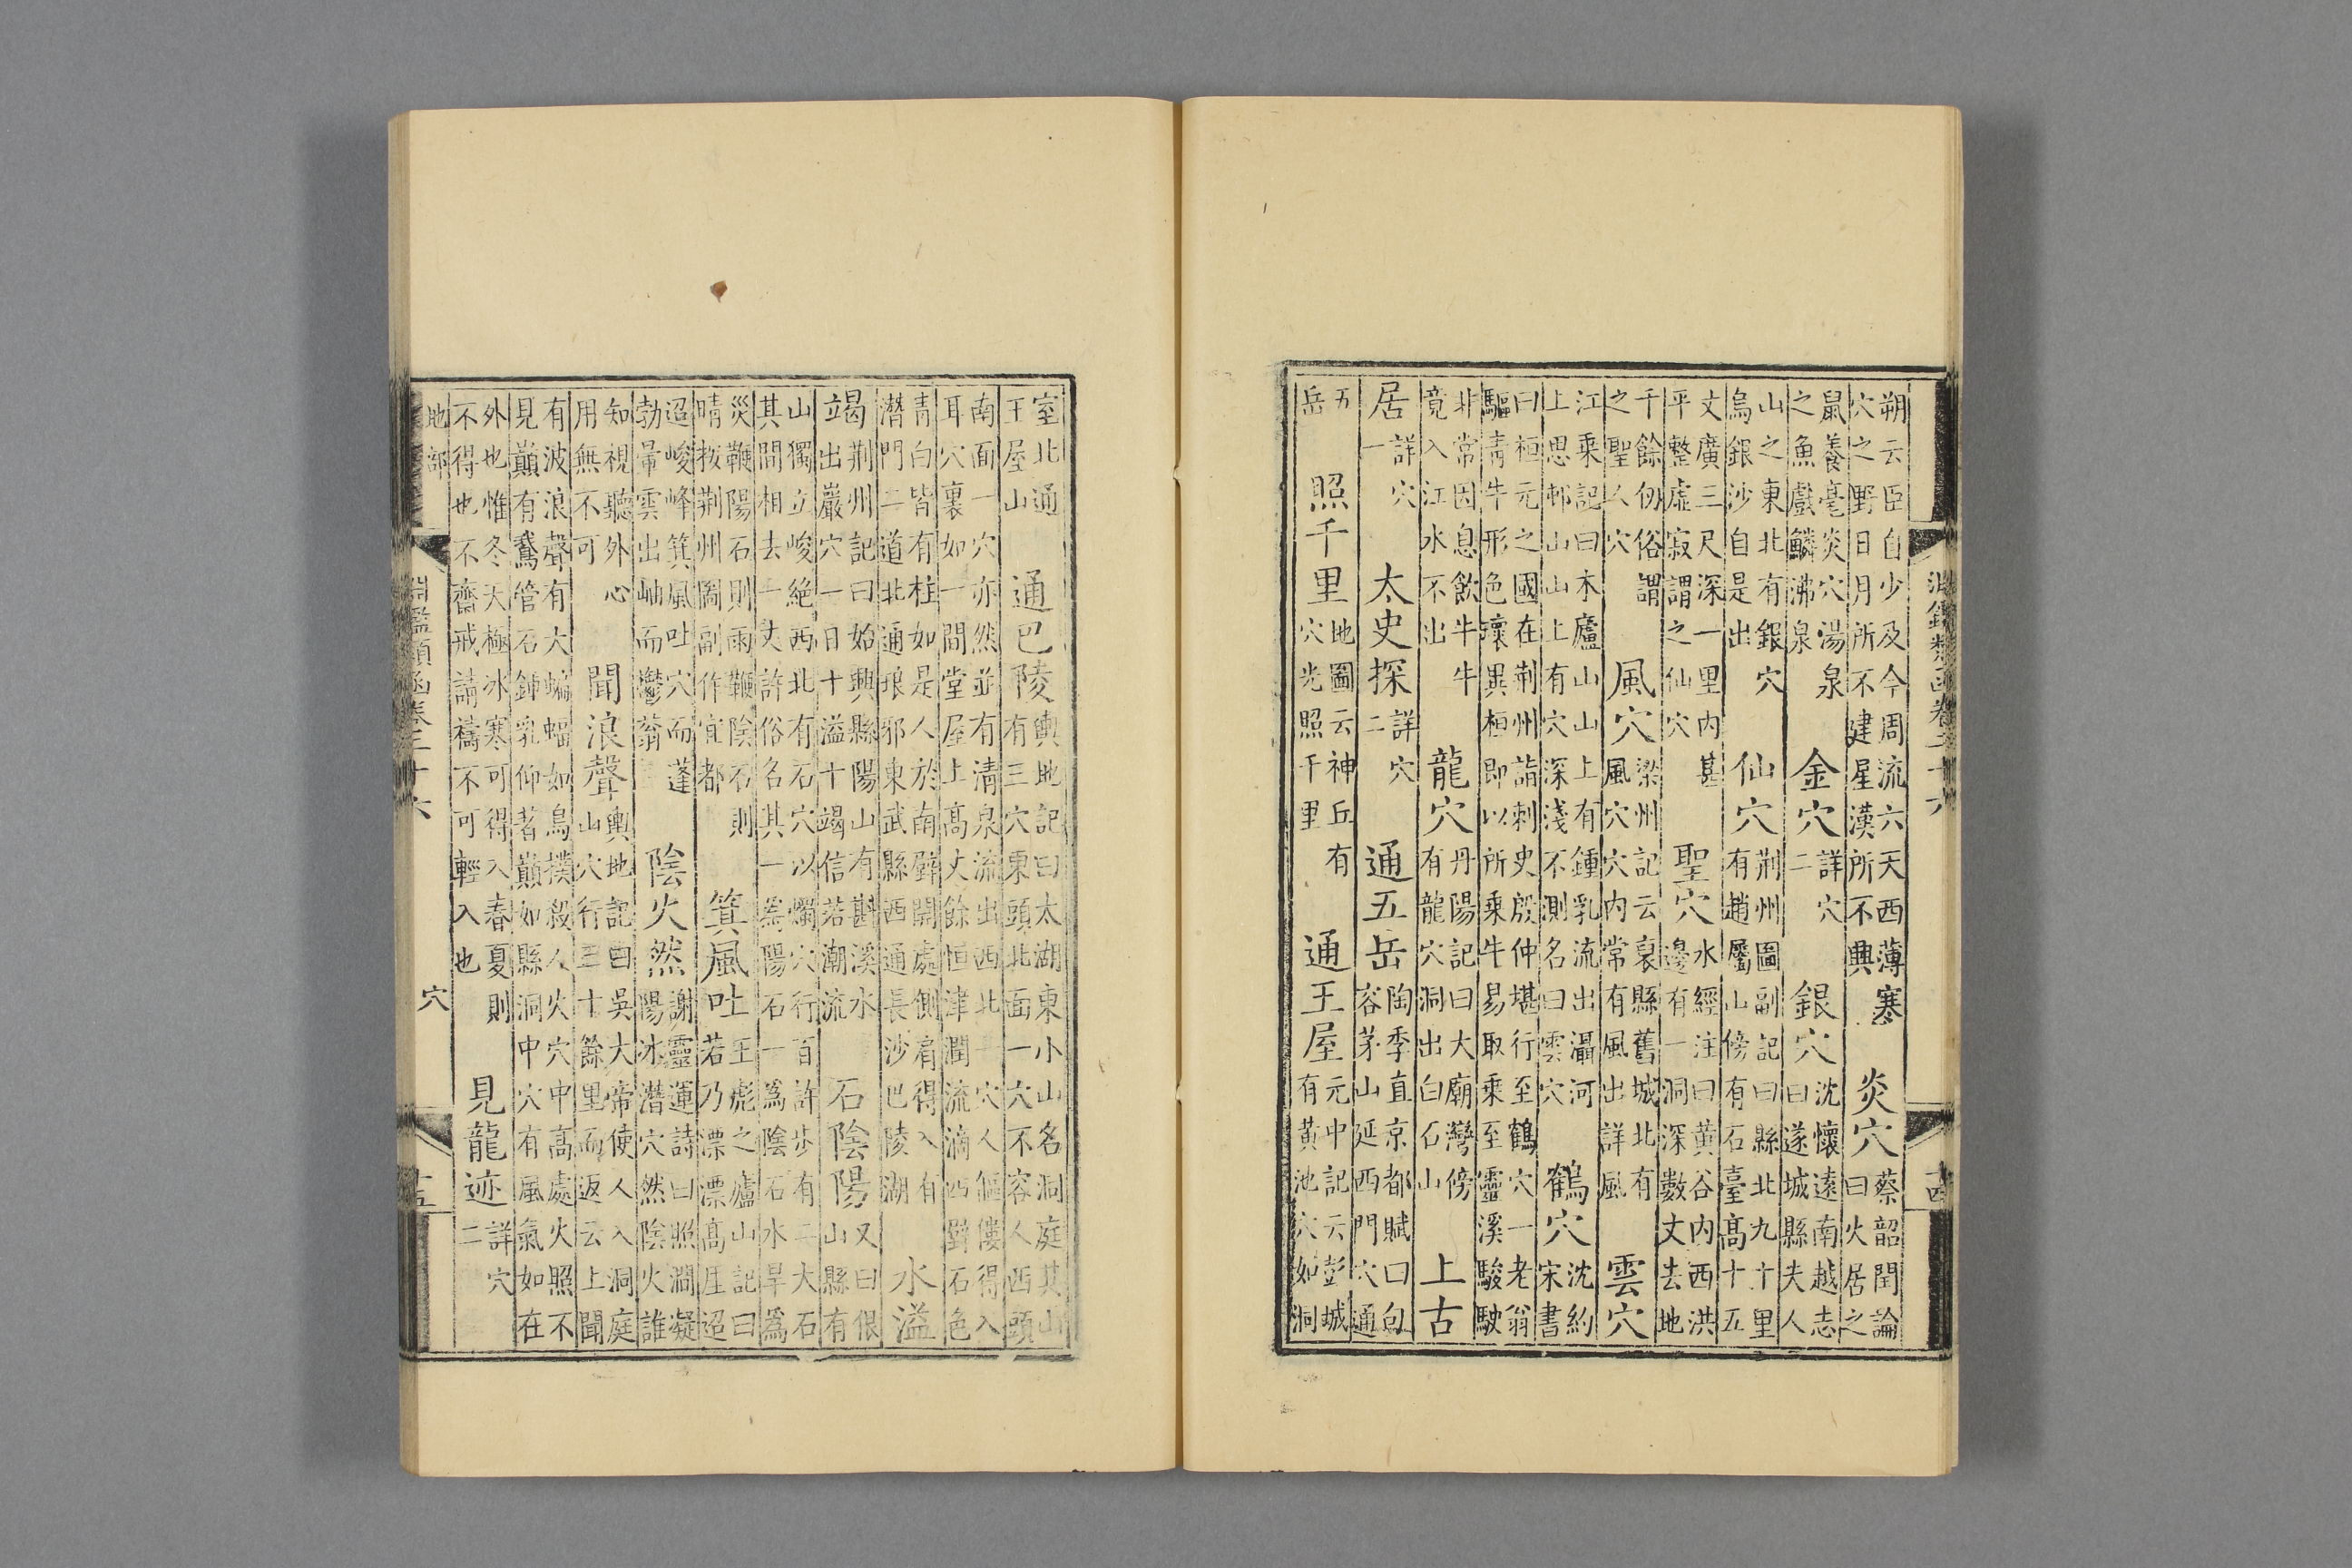 淵鑑類函卷三十六 十四
朔云臣自少及今周流六天西薄寒
穴之野日月所不建星漢所不興
炎穴
蔡韶閏論
曰火居之
鼠養毫炎穴湯泉
之魚戲鱗沸泉
金穴
詳穴
二
銀穴
沈懷遠南越志
曰遂城縣夫人
山之東北有銀穴
烏銀沙自是出
仙穴
荆州圖副記曰縣北九十里
有趙屬山傍有石臺高十五
丈廣三尺深一里內甚
平整虛寂謂之仙穴
聖穴
水經注曰黃谷內西洪
邊有一洞深數丈去地
千餘仞俗謂
之聖人穴
風穴
梁州記云襄縣舊城北有
風穴穴內常有風出詳風
雲穴
江乘記曰木廬山山上有鍾乳流出灄河
上思邨山山上有穴深淺不測名曰雲穴
鶴穴
沈約
宋書
曰桓元之國在荆州詣刺史殷仲堪行至鶴穴一老翁
驅青牛形色瓌異桓即以所乘牛易取乘至靈溪駿駛
非常因息飲牛牛
竟入江水不出
龍穴
丹陽記曰大廟灣傍
有龍穴洞出白石山
上古
居
詳穴
一
太史探
詳穴
二
通五岳
陶季直京都賦曰包
容茅山延西門穴通
五
岳
照千里
地圖云神丘有
穴光照千里
通王屋
元中記云彭城
有黃池穴如洞
室北通
王屋山
通巴陵
輿地記曰太湖東小山名洞庭其山
有三穴東頭北面一穴不容人西頭
南面一穴亦然並有清泉流出西北一穴人傴僂得入
耳穴裏如一間堂屋上高丈餘恒津潤流滴四劈石色
青白皆有柱如是人於南壁開處側肩得入有
潛門二道北通琅邪東武縣西通長沙巴陵湖
水溢
竭
荆州記曰始興縣陽山有斟溪水
出巖穴一日十溢十竭信若潮流
石陰陽
又曰佷
山縣有
山獨立峻絶西北有石穴以燭穴行百許步有二大石
其間相去一丈許俗名其一為陽石一為陰石水旱為
災鞭陽石則雨鞭陰石則
晴拔荆州圖副作宜都
箕風吐
王彪之廬山記曰
若乃漂漂高厓迢
迢峻峰箕風吐穴而蓬
勃暈雲出岫而鬱蓊
陰火然
謝靈運詩曰照澗凝
陽冰潛穴然陰火誰
知視聽外心
用無不可
聞浪聲
輿地記曰吳大帝使人入洞庭
山穴行三十餘里而返云上聞
有波浪聲有大蝙蝠如烏撲殺人火穴中高處火照不
見巔有鵞管石鍾乳仰者巔如縣洞中穴有風氣如在
外也惟冬天極冰寒可得入春夏則
不得也不齋戒請禱不可輕入也
見龍迹
詳穴
二
地部 淵鑑類函卷三十六 穴 十五